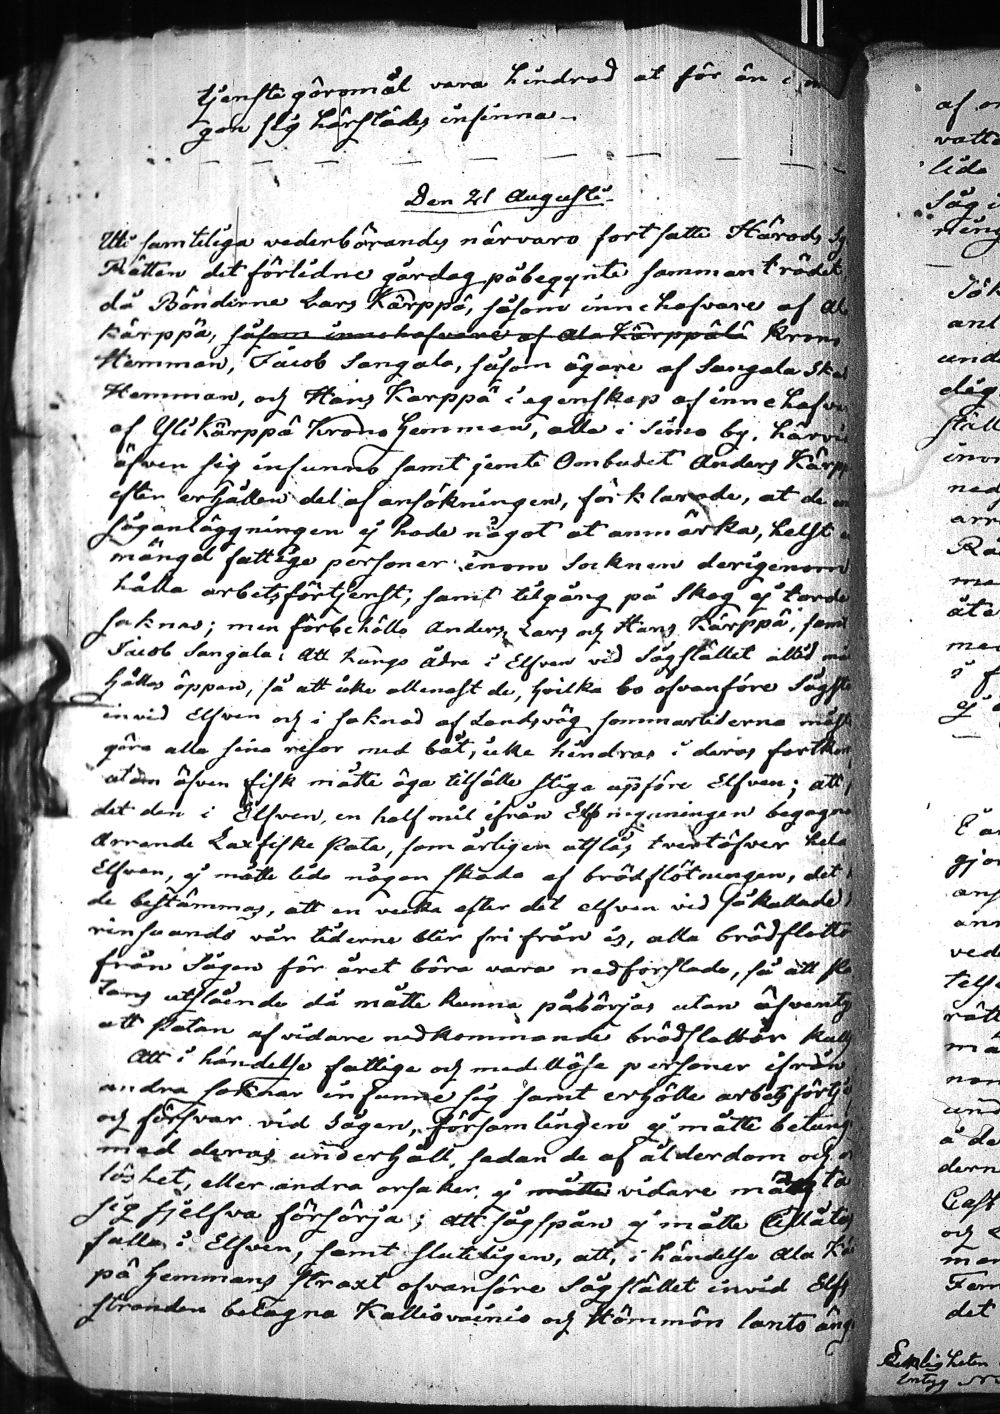 tjenste göromål vara hindrad at för än i m
gon sig härstädes infinna.
Den 21 Augusti.
Uti samteliga vederbörandes närvaro fortsatte Härads Sy
Rätten det förlidne gårdag påbegynte sammanträdet
då Bönderne Lars Kärppä, såsom innehafvare af Al
kärppä, såsom innehafvare af Ala Kärppälä Krono
Hemman, Jacob Sangala, såsom ägare af Sangala Ska
Hemman, och Hans Karppä i egenskap af innehafv
af Yli Kärppä Krono Hemman, alla i Simo by, härvi
äfven sig infunno samt jemte Ombudet Anders Kärp
efter erhållen del af ansökningen, förklarade, at de
såganläggningen ej hade något at anmärka, helst
mängd fattige personer inom Socknen derigenom
hålla arbetsförtjenst, samt tilgång på Skog ej torde
saknas; men förbehöllo Anders, Lars och Hans Kärppä, samt
Jacob Sangala: Att Kungs ådra i Elfven vid Sågstället alltid må
hållas öppen, så att icke allenast de, hvilka bo ofvanföre Sågst
invid Elfven och i saknad af Landsväg sommartiderna måst
göra alla sina resor med båt, icke hindras i deras fortkom
utan äfven fisk måtte äga tilfälle stiga uppföre Elfven; att
det den i Elfven, en half mil ifrån Elfmynningen begagn
Arrende Laxfiske Pata, som årligen utslås tvertöfver hela
Elfven, ej måtte lida någon skada af brädflötningen, det
de bestämmas, att en vecka efter det elfven vid såkallade
rinsuando vår tiderne blir fri från is, alla brädflottor
från Sågen för året böra vara nedforslade, så att Pa
tans utslående då måtte kunna påbörjas utan äfventyr
att Patan af vidare nedkommande brädflottor kull
Att i händelse fattige och medellöse personer ifrån
andra Soknar infunne sig samt erhölle arbetsförtj
och försvar vid Sågen, församlingen ej måtte betung
med deras underhåll, sedan de af ålderdom och
löshet, eller andra orsaker, ej måtte vidare måtta
sig sjelfva försörja; att sågspån ej måtte tillåtas
falla i Elfven, samt sluteligen, att, i händelse Ala Kä
pä Hemmans straxt ofvanföre Sågstället invid Elf
stranden belägna Kalliovainio och Hömmön lanto äng
af
vatt
lida
Såg
räng
Jök
anl
und
dig
ställ
inom
ned
arr
Rä
me
åta
med
i f
ej
E
gjor
ans
ann
ved
telse
rätt
mä
nom
und
å de
dern
Cass
och
man
Fem
det
Enligheten
intyg